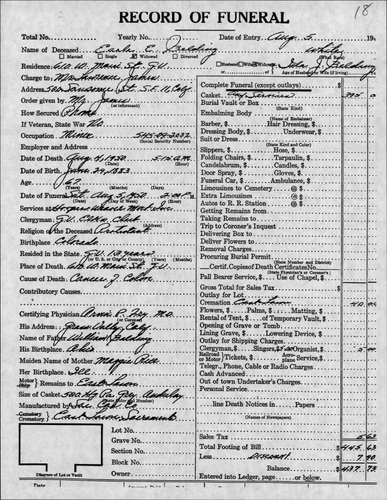 18
RECORD OF FUNERAL
Total No. Yearly No. Date of Entry Aug. 5, 19
Name of Deceased Earle E. Balding White
Married Single Widowed Divorced (What Race)
Residence 610 W. Main St. G.V. Husband Wife Widow of Ida J. Balding
Charge to: Lawrence Age of Husband or Wife (If living)
Address 500 Sansome St. S.F. 11, Calif
Order given by Mr. James
How Secured Phone
If Veteran, State War No
Occupation Miner 545-09-2092
Social Security Number
Employer and Address
Date of Death Aug 4, 1950 5:15 A.M.
Date of Birth June 29, 1883
Age 67
Date of Funeral Sat. Aug 5, 1950 2:00 P.M.
Services at
Clergyman G.V. Elks Club
Religion of the Deceased Protestant
Birthplace Colorado
Resided in the G.V. 13 years
(or U.S. or City or County) (Months or Years)
Place of Death 610 W. Main St. G.V.
Cause of Death Cancer of Colon
Contributory Causes
Certifying Physician M.D.
His Address Grass Valley, Calif.
Name of Father William Balding
His Birthplace Ohio
Maiden Name of Mother Maggie Rice
Her Birthplace Ill
Motor Ship Remains to East Lawn
Size of Casket
Manufactured by
Cemetery Crematory East Lawn Sacramento
Lot No.
Grave No.
Section No.
Block No.
Owner
Diagram of Lot or Vault
Complete Funeral (except outlays) $
Casket $
Burial Vault or Box
(State Kind)
Embalming Body
(Name of Embalmer)
Barber, $ Hair Dressing, $
Dressing Body, $ Underwear, $
Suit or Dress
(State Kind and Color)
Slippers, $ Hose, $
Folding Chairs, $ Tarpaulin, $
Candelabrum, $ Candles, $
Door Spray, $ Gloves, $
Funeral Car, $ Ambulance, $
Limousines to Cemetery @ $
Extra Limousines @ $
Autos to R. R. Station @ $
Getting Remains from
Taking Remains to
Trip to Coroner's Inquest
Delivering Box to
Deliver Flowers to
Removal Charges
Procuring Burial Permit
(State Number and District)
Certif. Copies of Death Certificates No.
(State Physician's or Coroner's)
Pall Bearer Service, $ Use of Chapel, $
Gross Total for Sales and Service $
Outlay for Lot
Cremation East Lawn 40.00
Flowers, $ Palms, $ Matting, $
Rental of Tent, $ of Temporary Vault, $
Opening of Grave or Tomb
Lining Grave, $ Lowering Device, $
Outlay for Shipping Charges
Clergyman, $ Singers, $ Organist, $ 5.00
Railroad or Motor Tickets, $ Aeroplane Service, $
Telegr., Phone, Cable or Radio Charges
Cash Advanced
Out of town Undertaker's Charges
Personal Service
line Death Notices in Papers
(Names of Newspapers)
Sales Tax 5.63
Total Footing of Bill $ 445.63
Less Discount 7.90
Balance $ 437.73
Entered into Ledger, page or below.